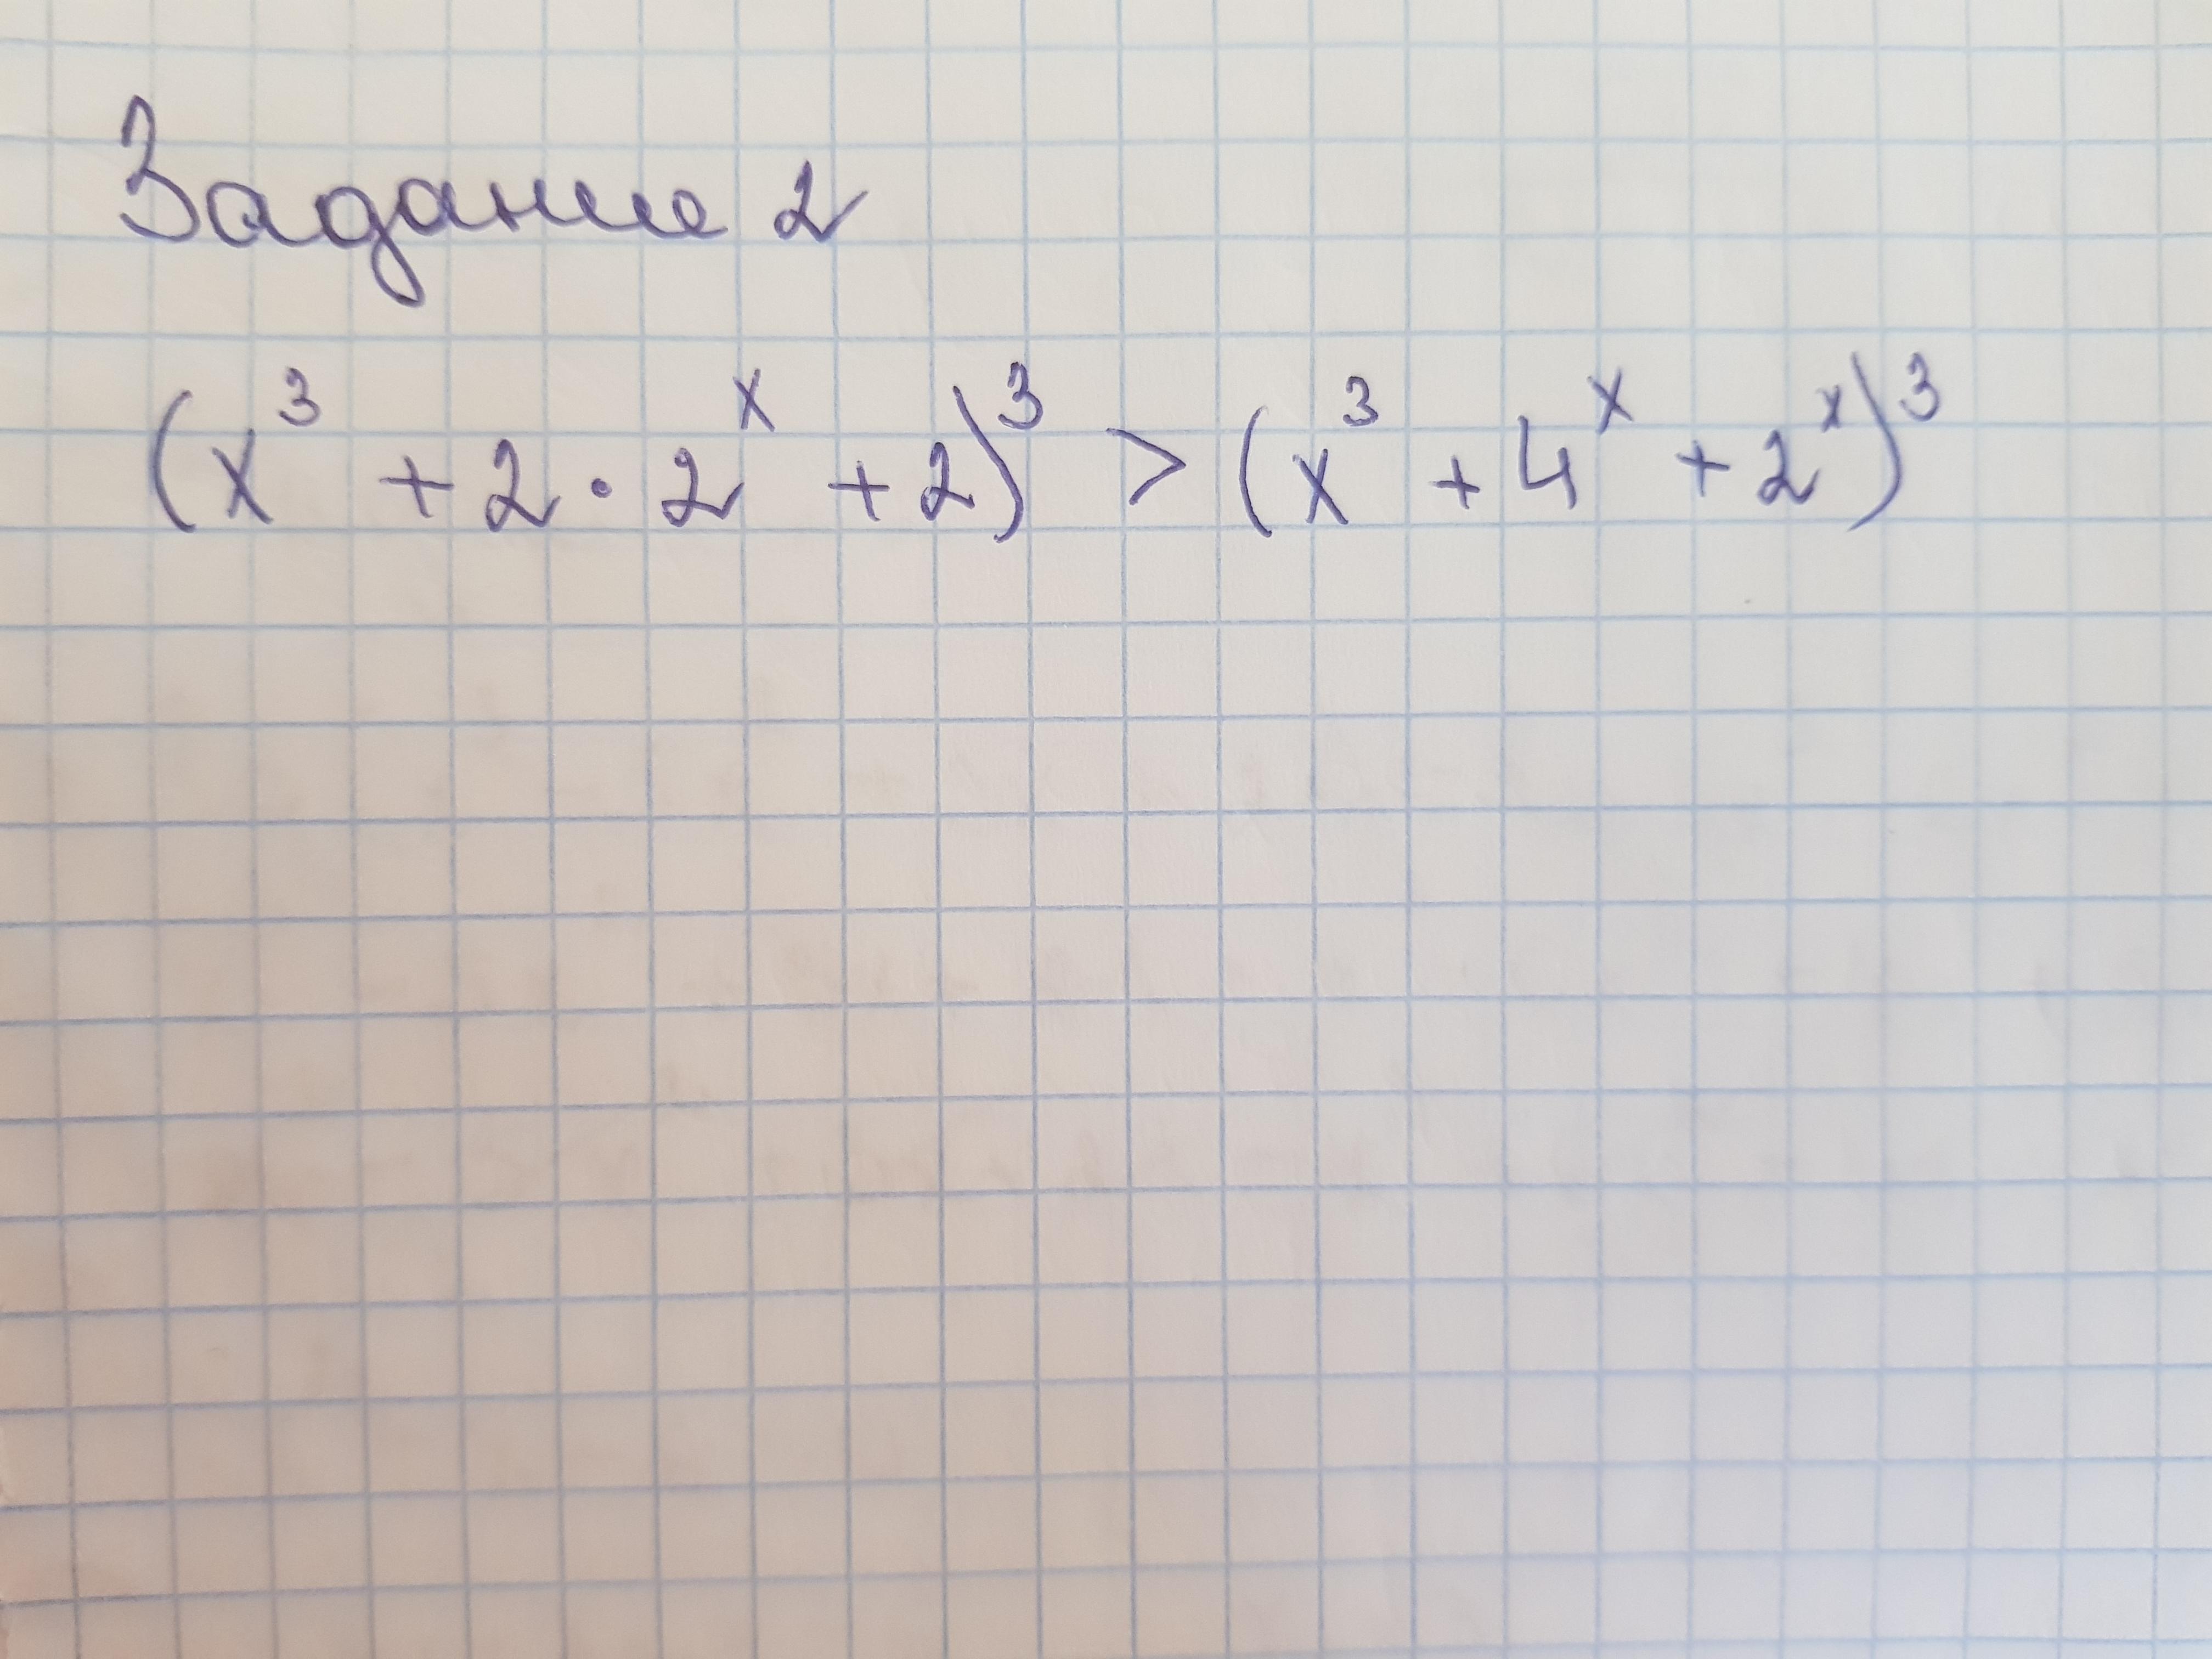 Задание 2
(x³ + 2 · 2ˣ + 2)³ > (x³ + 4ˣ + 2ˣ)³